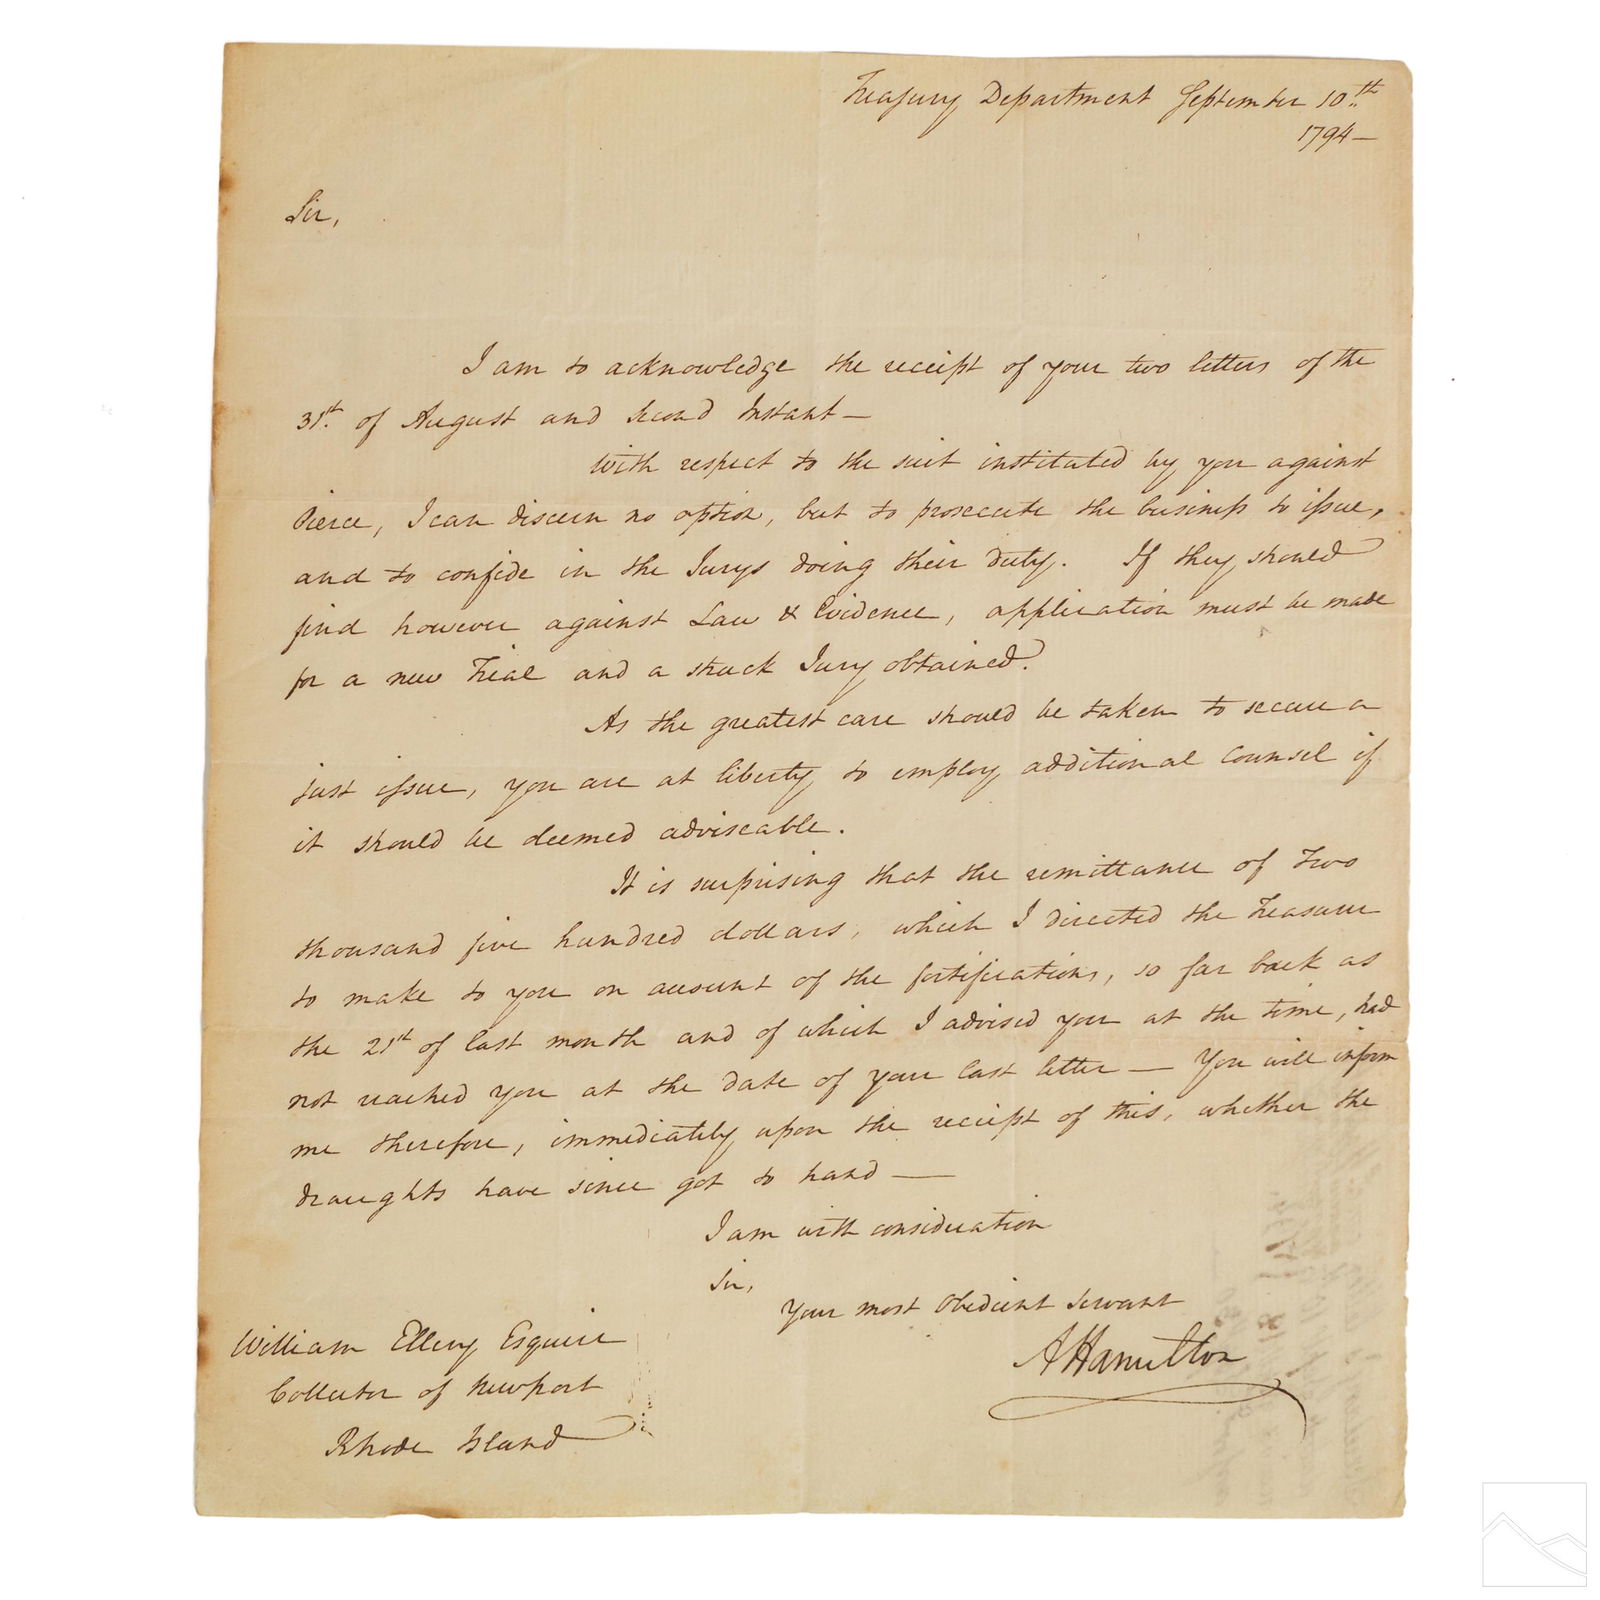 Treasury Department September 10.th
1794—
Sir,
I am to acknowledge the receipt of your two letters of the
31st. of August and second Instant—
With respect to the suit instituted by you against
Pierce, I can discern no option, but to prosecute the business to issue,
and to confide in the Jurys doing their duty. If they should
find however against Law & Evidence, application must be made
for a new Trial and a struck Jury obtained.
As the greatest care should be taken to secure a
just issue, you are at liberty to employ additional Counsel if
it should be deemed adviseable.
It is surprising that the remittance of Two
thousand five hundred dollars, which I directed the Treasurer
to make to you on account of the fortifications, so far back as
the 21st of last month and of which I advised you at the time, had
not reached you at the date of your last letter — You will inform
me therefore, immediately upon the receipt of this, whether the
draughts have since got to hand —
I am with consideration
Sir,
Your most Obedient servant
A Hamilton
William Ellery Esquire
Collector of Newport
Rhode Island